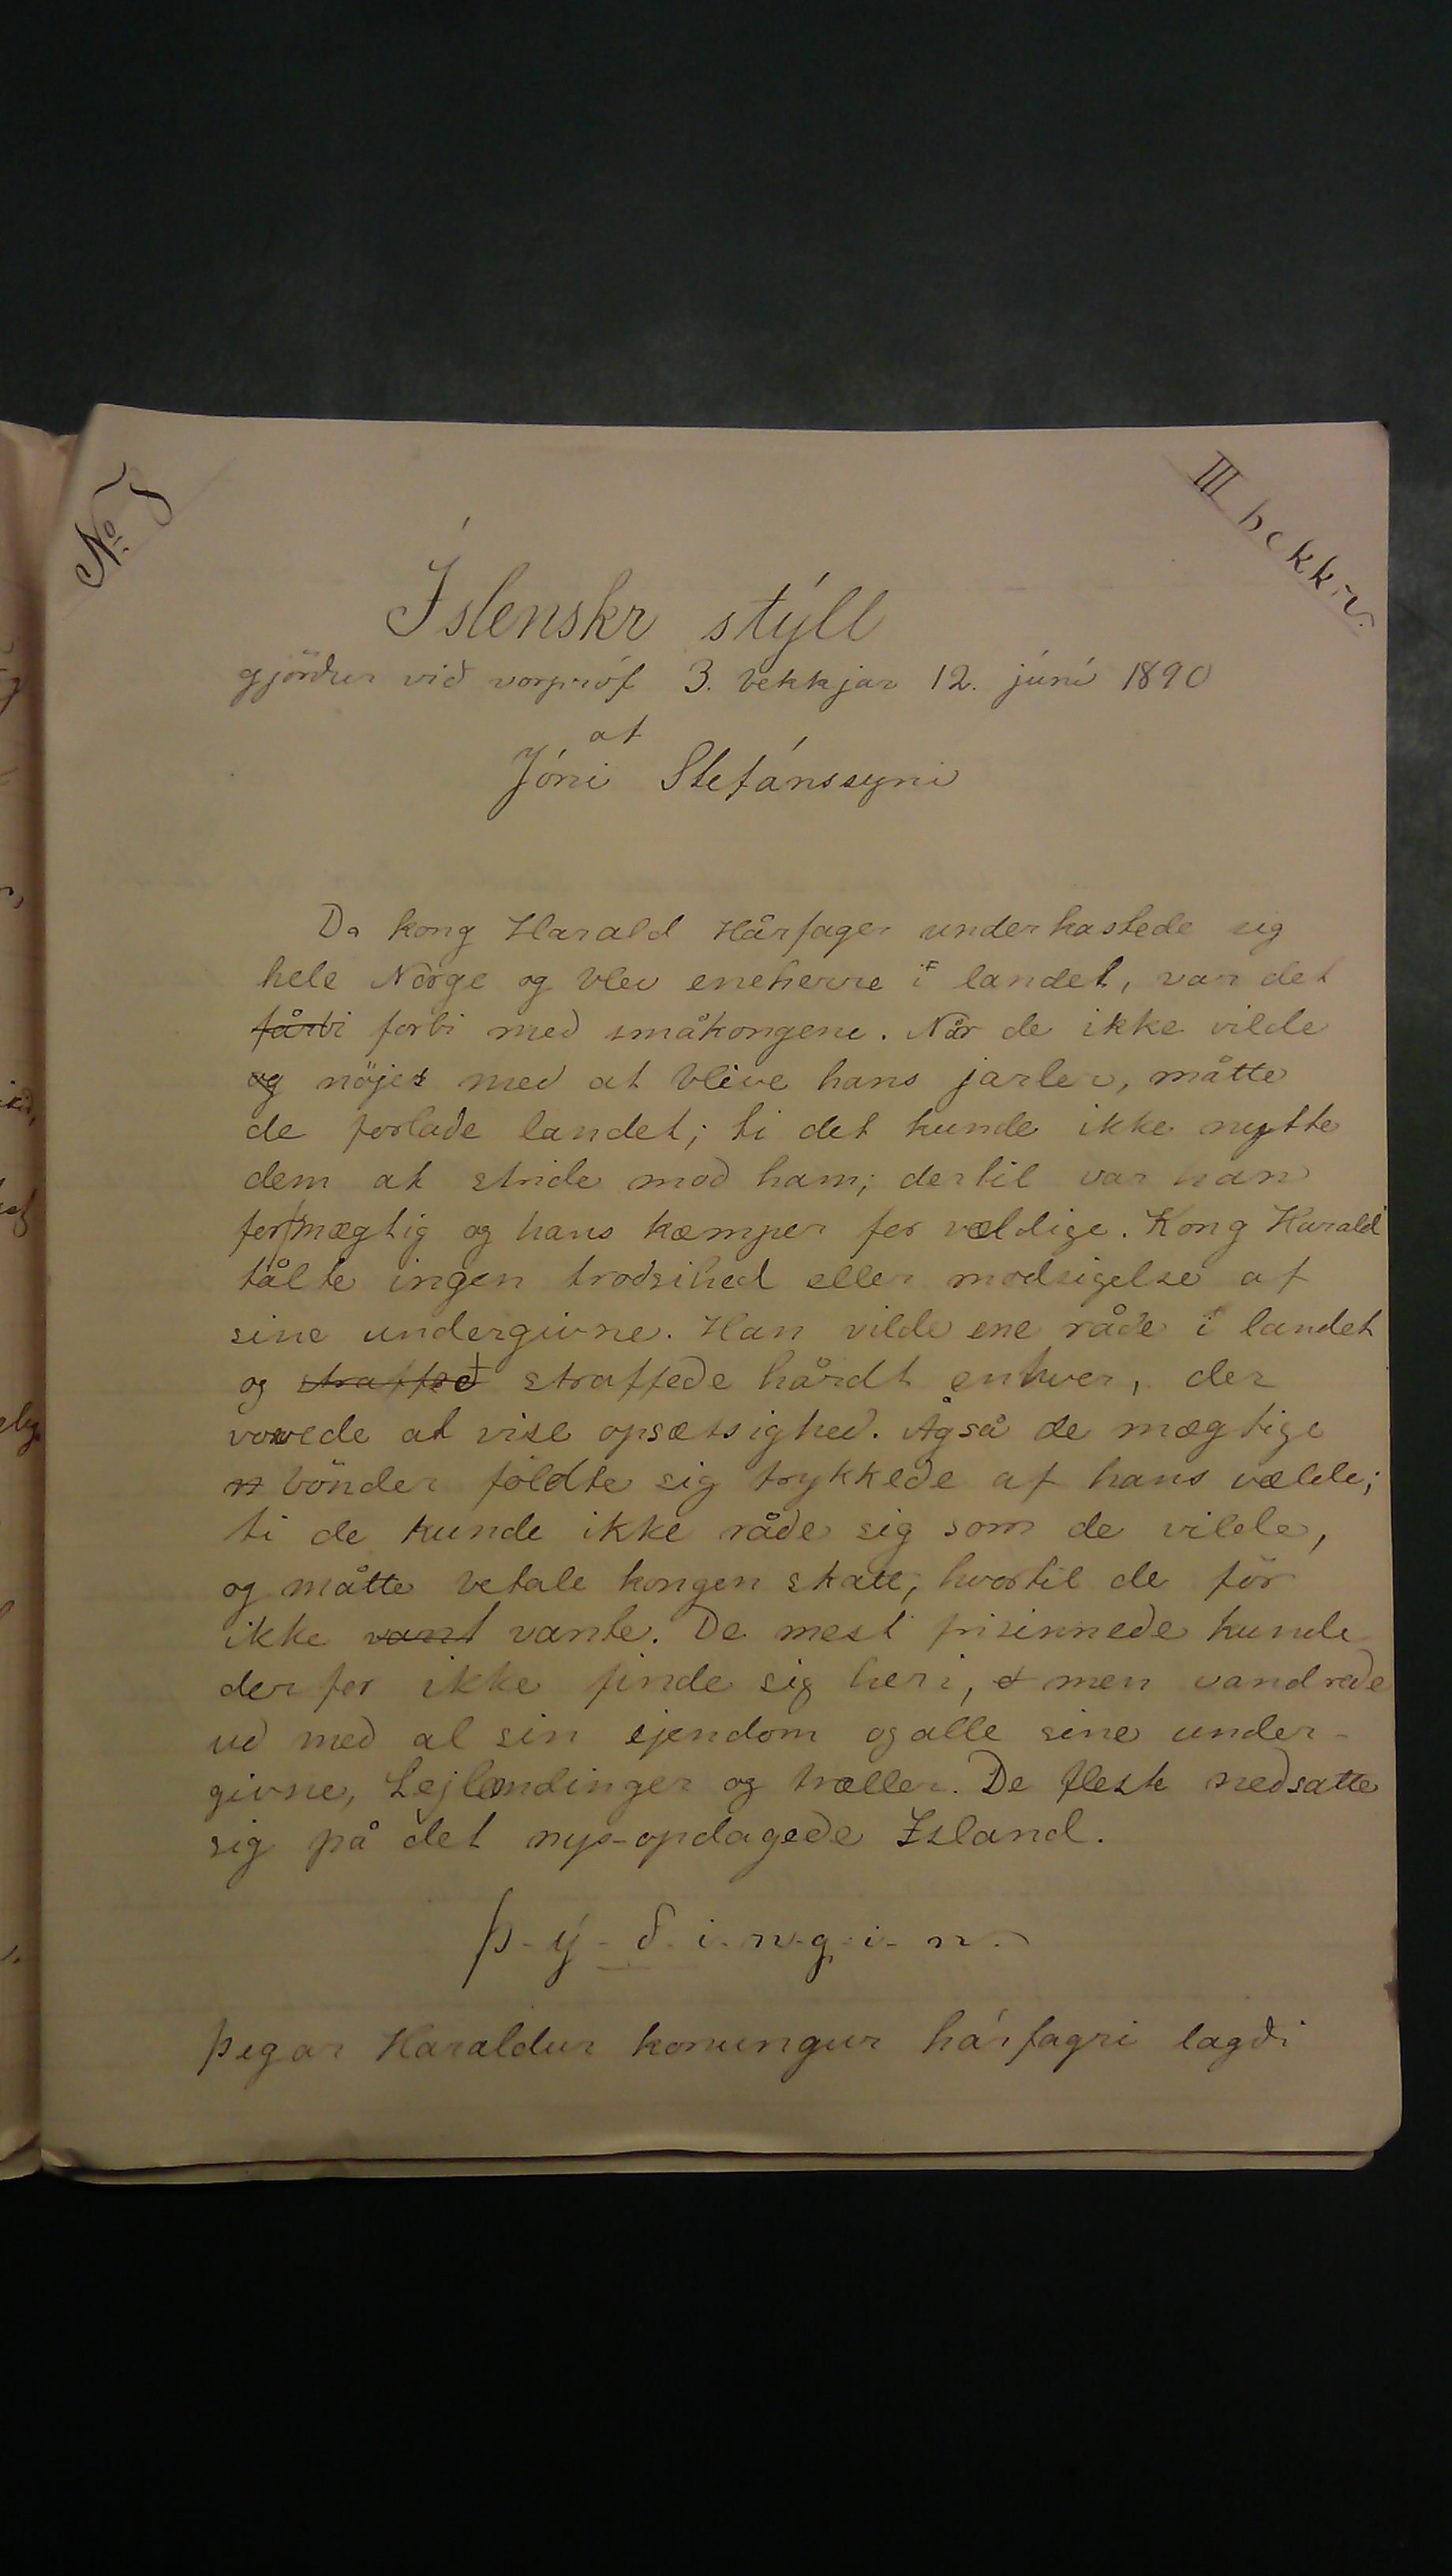 No. 8
III bekkr.
Íslenskr stýll
gjörður við vorpróf 3. bekkjar 12. júní 1890
af
Jóni Stefánssyni
Da kong Harald Hårfager underkastede sig
hele Norge og blev eneherre i landet, var det
fårbi forbi med småkongene. Når de ikke vilde
og nöjes med at blive hans jarler, måtte
de forlade landet; ti det kunde ikke nytte
dem at stride mod ham; dertil var han
for mægtig og hans kæmper for vældige. Kong Harald
tålte ingen trodsihed eller modsigelse af
sine undergivne. Han vilde ene råde i landet
og straffed straffede hårdt enhver, der
vovede at vise opsætsighed. Ågså de mægtige
bönder földte sig trykkede af hans vælde;
ti de kunde ikke råde sig som de vilde,
og måtte betale kongen skatt, hvortil de för
ikke vant vante. De mest frisinnede kunde
derfor ikke finde sig heri, men vandrede
ud med al sin ejendom og alle sine under-
givne, Lejlændinger og træller. De fleste nedsatte
sig på det nys-opdagede Island.
Þ-ý-ð-i-n-g-i-n.
Þegar Haraldur konungur hárfagri lagði